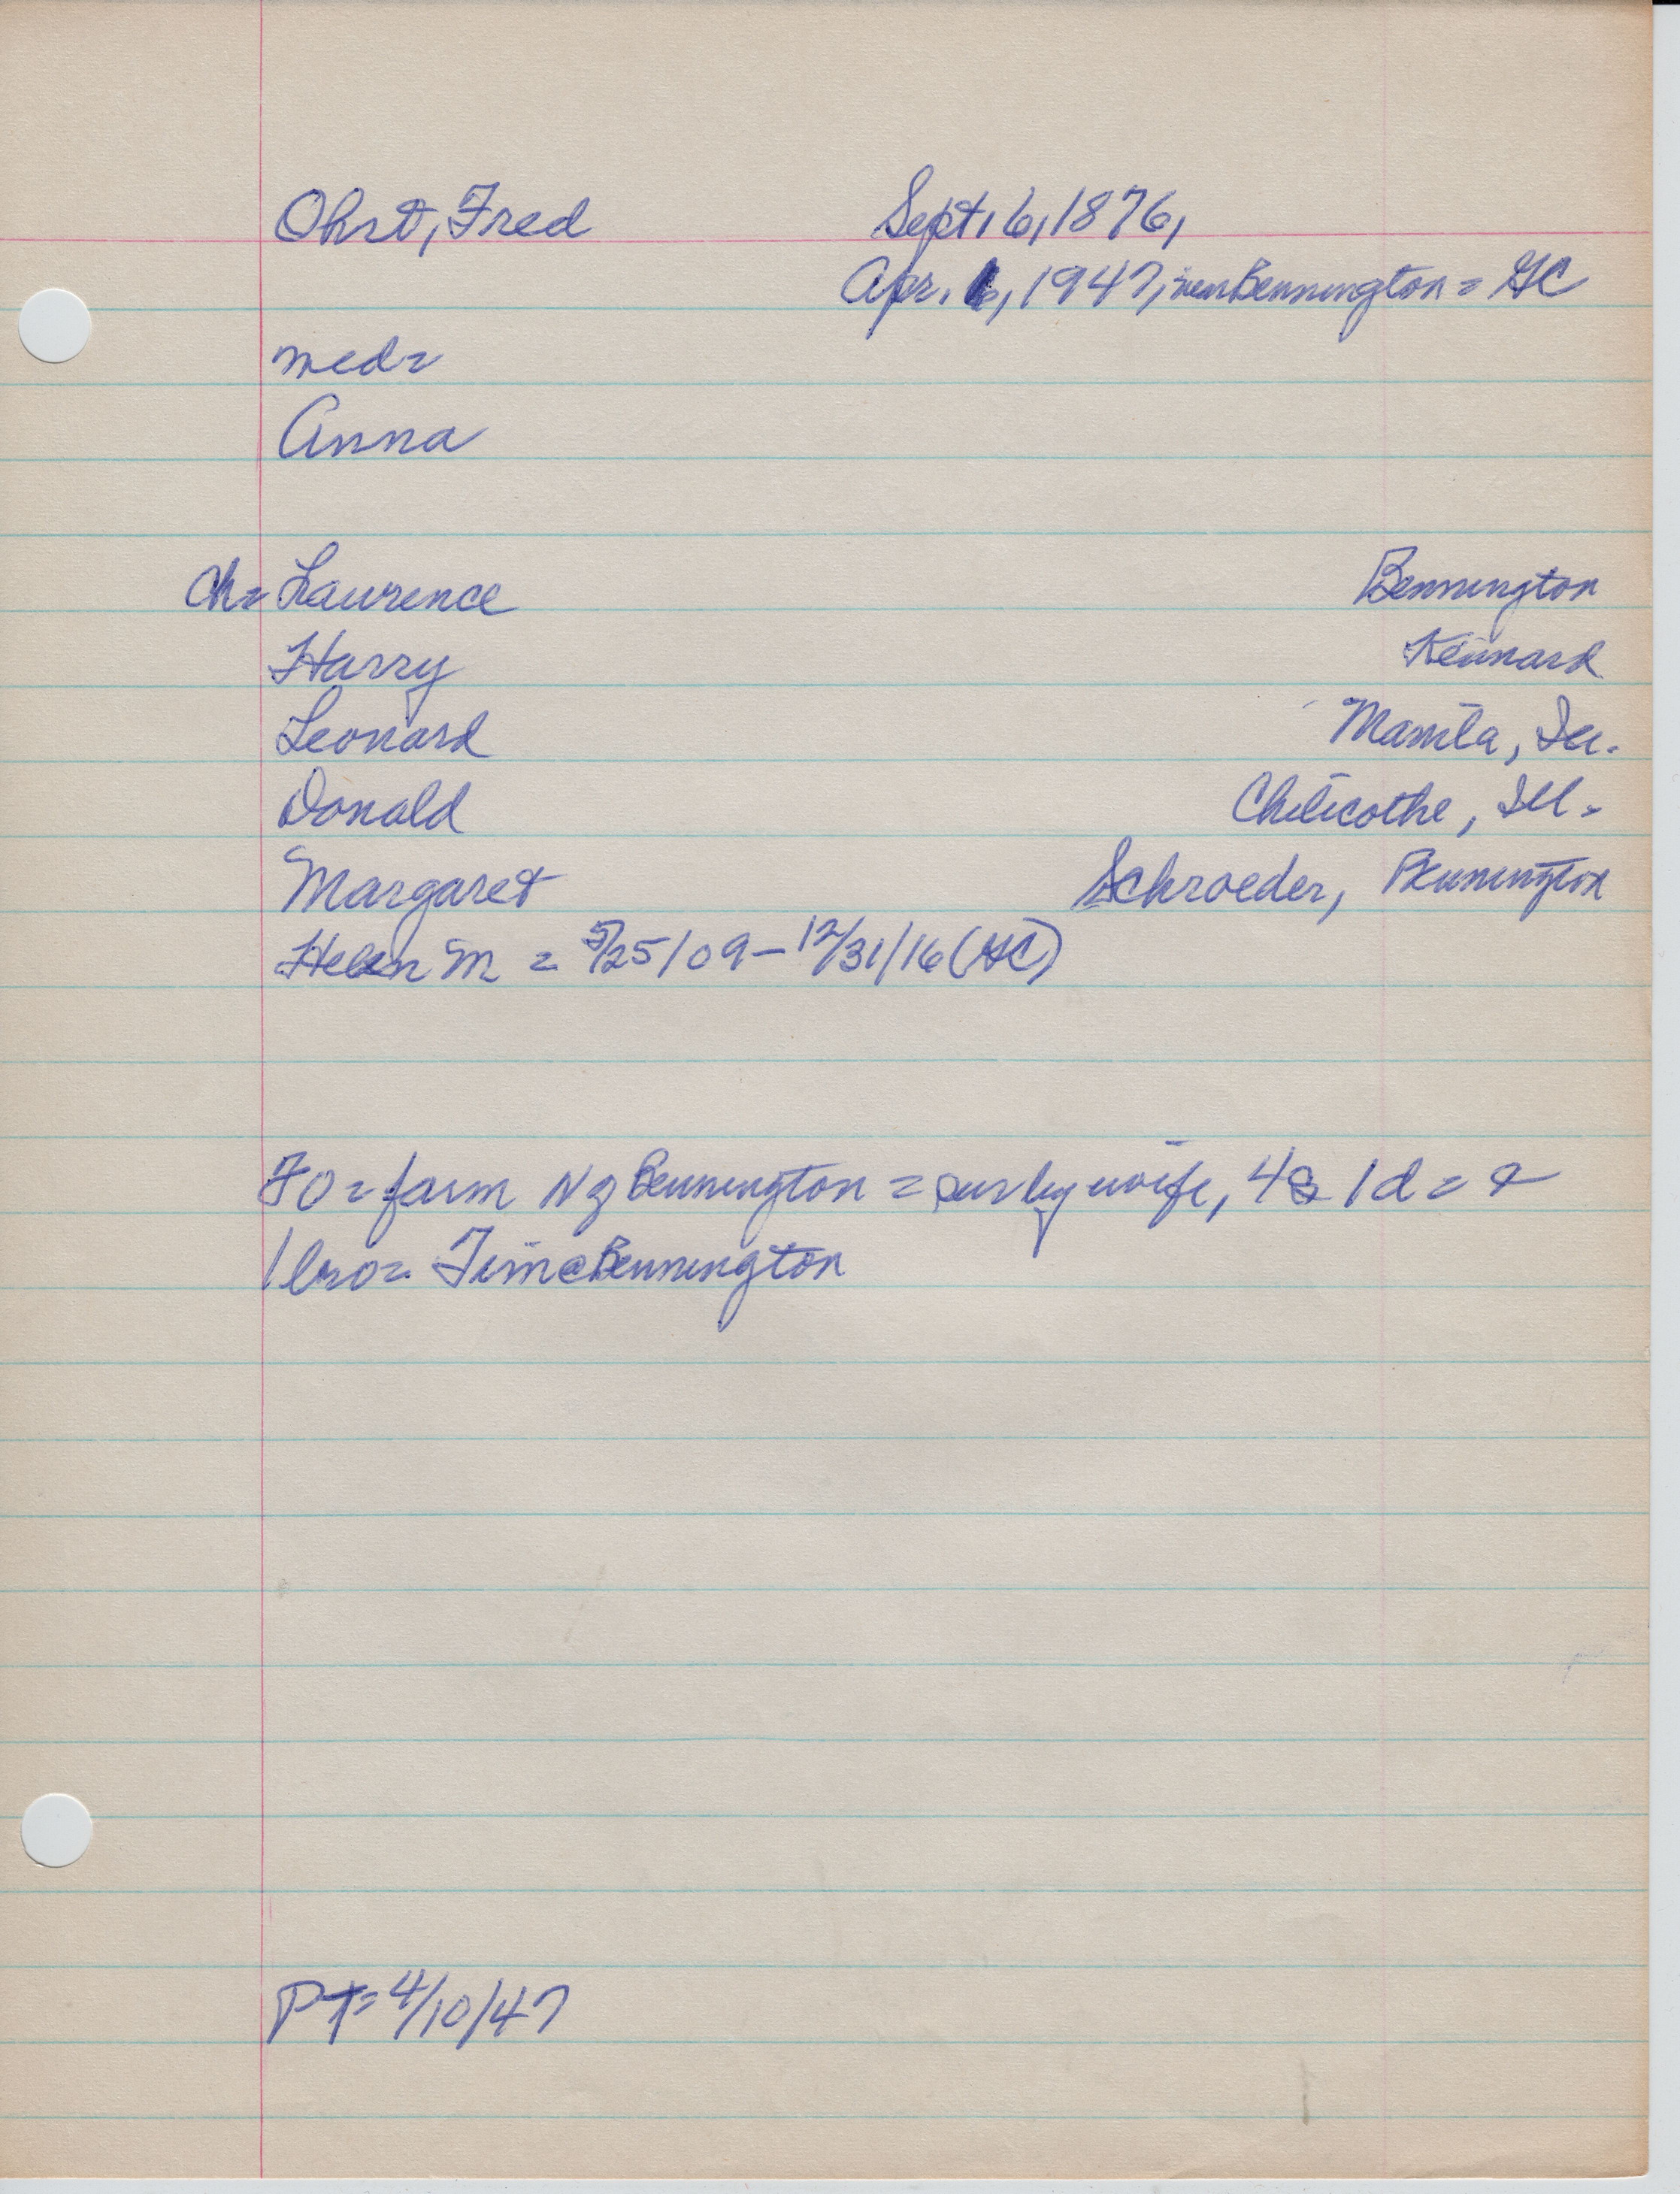 Ohrt, Fred Sept. 6, 1876,
Apr. 6, 1947, near Bennington = GC
med=
Anna
ch= Laurence Bennington
Harry Kennard
Leonard Manila, Ia.
Donald Chilicothe, Ill.
Margaret Schroeder, Bennington
Helen M = 5/25/09 - 12/31/16 (GC)
FO = farm N of Bennington = sur by wife, 4s 1d = &
1 bro = Jim @ Bennington
PT = 4/10/47